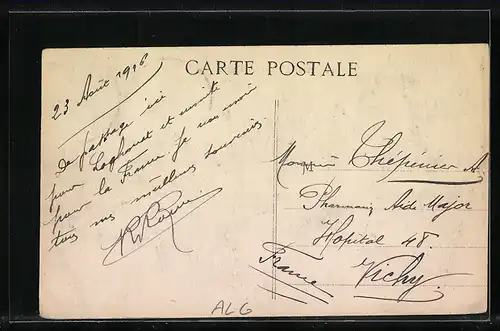 CARTE POSTALE
23 Août 1916
De passage ici
pour Laghouat et ensuite
pour la France je vous envoi
tous mes meilleurs souvenirs
Monsieur Thépénier A.
Pharmacien Aide Major
Hopital 48.
Vichy.
France
ALG